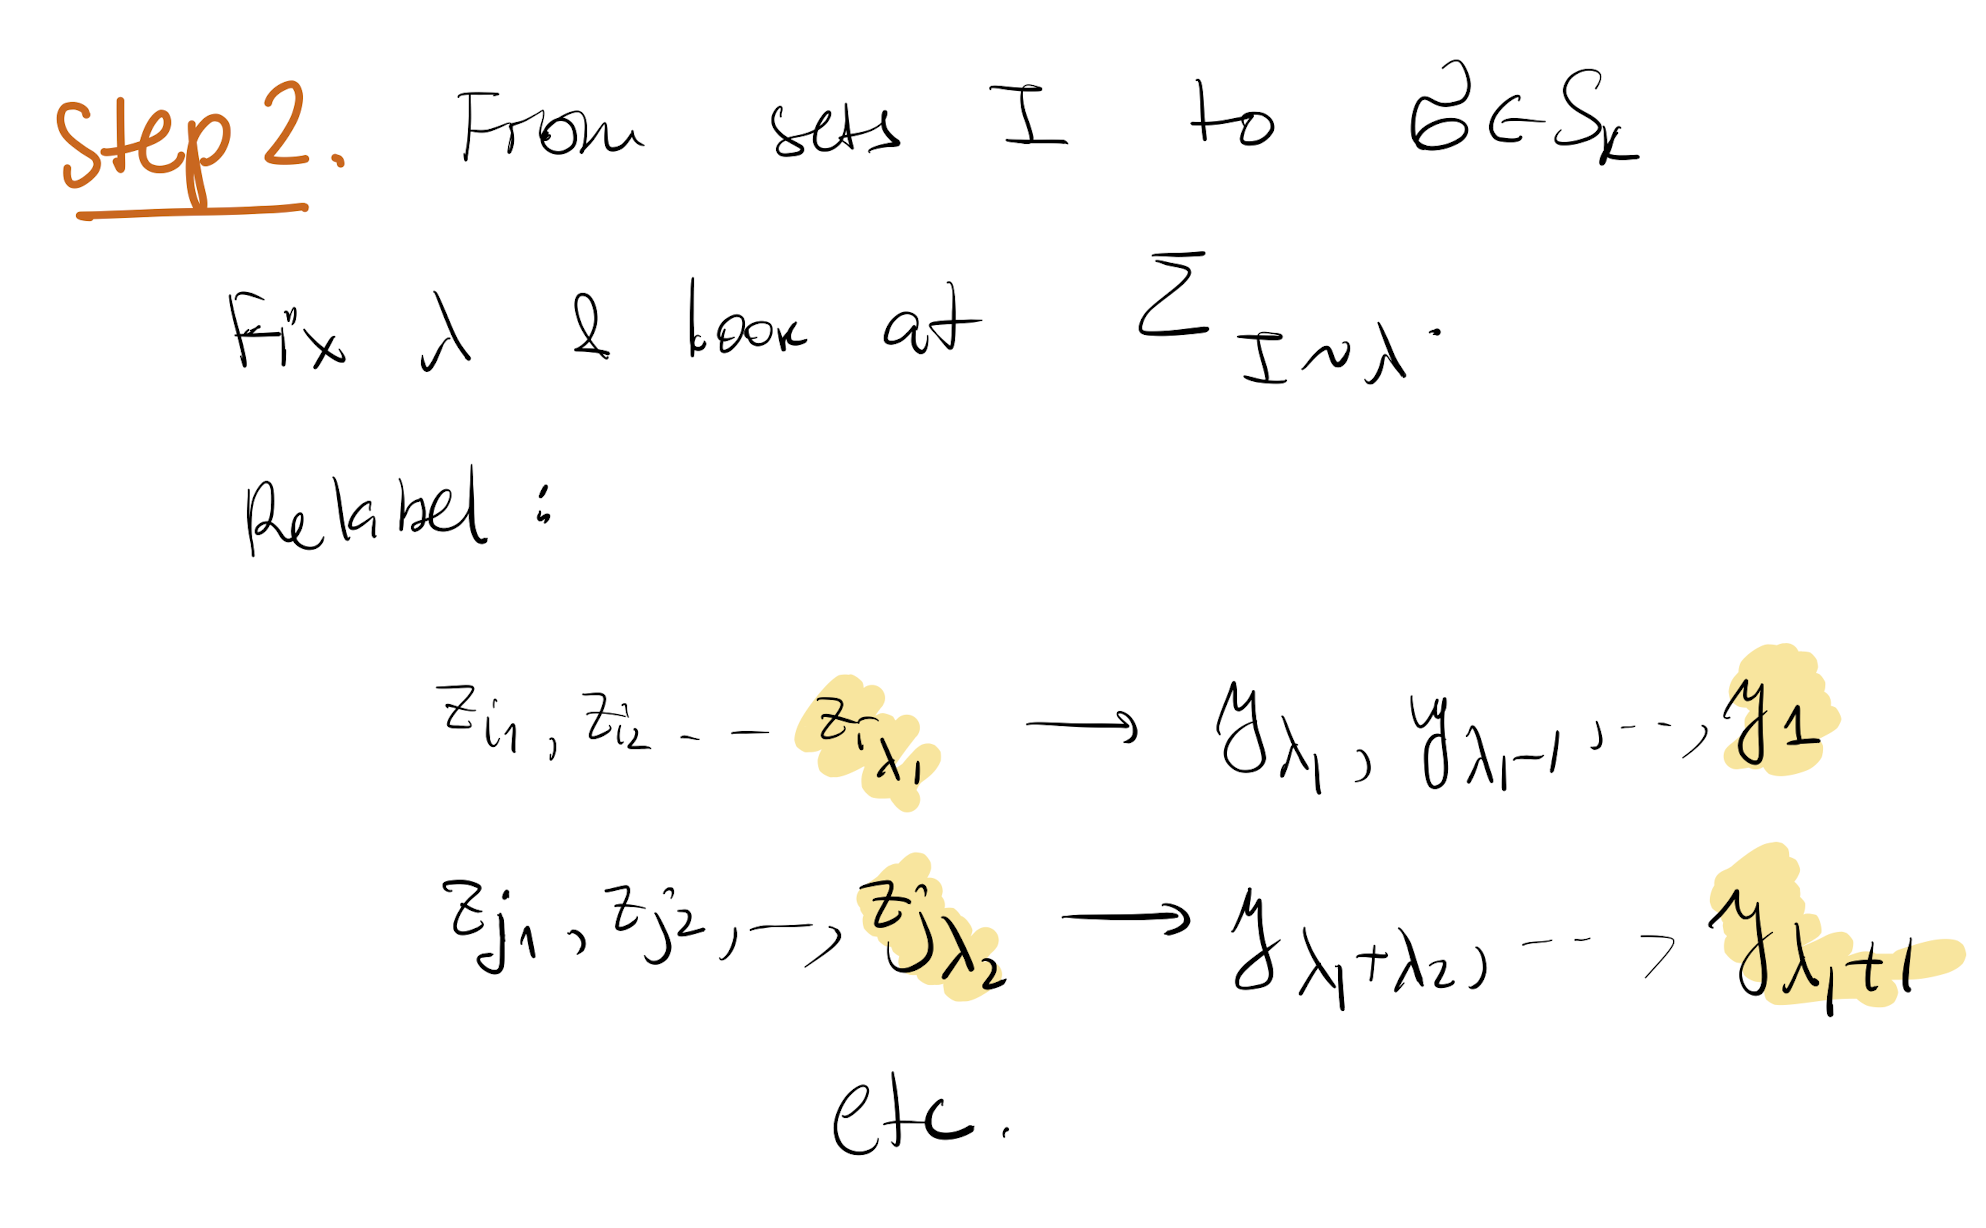 Step 2. From sets I to σ ∈ S_k
Fix λ & look at Σ_{I∼λ}.
Relabel :
z_{i_1}, z_{i_2} - - z_{i_{λ_1}} → y_{λ_1}, y_{λ_1-1}, ..., y_1
z_{j_1}, z_{j_2}, —, z_{j_{λ_2}} → y_{λ_1+λ_2}, ---, y_{λ_1+1}
etc.